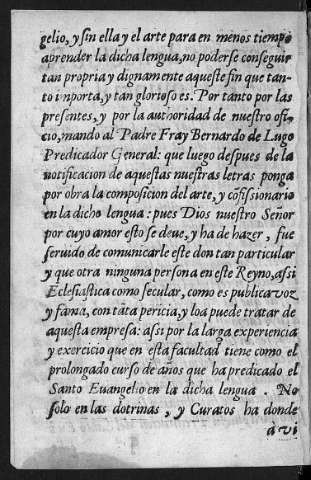 gelio, y sin ella y el arte para en menos tiempo
aprender la dicha lengua, no poderse conseguir
tan propria y dignamente aqueste fin que tan-
to inporta, y tan glorioso es. Por tanto por las
presentes, y por la authoridad de nuestro ofi-
cio, mando al Padre Fray Bernardo de Lugo
Predicador General: que luego despues de la
notificacion de aquestas nuestras letras ponga
por obra la composicion del arte, y cõfissionario
en la dicho lengua: pues Dios nuestro Senor
por cuyo amor esto se deue, y ha de hazer, fue
seruido de comunicarle este don tan particular
y que otra ninguna persona en este Reyno, assi
Eclesiastica como secular, como es publica voz
y fama, con tãta pericia, y loa puede tratar de
aquesta empresa: assi por la larga experiencia
y exercicio que en esta facultad tiene como el
prolongado curso de años que ha predicado el
Santo Euangelio en la dicha lengua. No
solo en las dotrinas, y Curatos ha donde
à vi